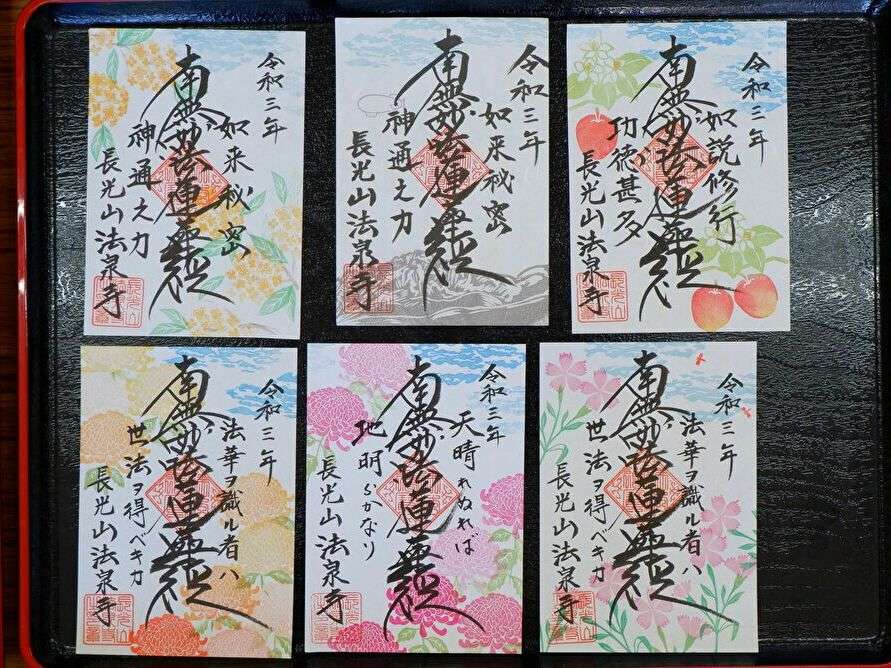 令和三年
如来秘密
南無妙法蓮華経
神通之力
長光山法泉寺
令和三年
如来秘密
南無妙法蓮華経
神通之力
長光山法泉寺
令和三年
如説修行
南無妙法蓮華経
功徳甚多
長光山法泉寺
令和三年
法華ヲ識ル者ハ
南無妙法蓮華経
世法ヲ得ベキカ
長光山法泉寺
令和三年
天晴れぬれば
南無妙法蓮華経
地明らかなり
長光山法泉寺
令和三年
法華ヲ識ル者ハ
南無妙法蓮華経
世法ヲ得ベキカ
長光山法泉寺